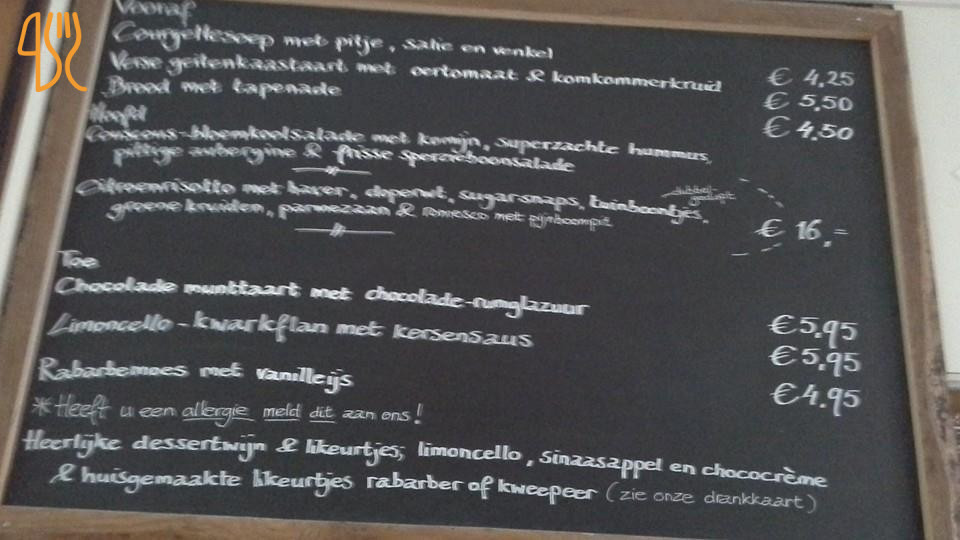 Vooraf
Courgettesoep met pitje, salie en venkel € 4,25
Verse geitenkaastaart met oertomaat & komkommerkruid € 5,50
Brood met tapenade € 4,50
Hoofd
Couscous-bloemkoolsalade met komijn, superzachte hummus,
pittige aubergine & frisse sperzieboonsalade
Citroenrisotto met haver, doperwt, sugarsnaps, tuinboontjes,
dubbel gedopt
groene kruiden, parmezaan & romesco met pijnboompit € 16,=
Toe
Chocolade munttaart met chocolade-rumglazuur € 5,95
Limoncello-kwarkflan met kersensaus € 5,95
Rabarbermoes met vanilleijs € 4.95
*Heeft u een allergie meld dit aan ons!
Heerlijke dessertwijn & likeurtjes; limoncello, sinaasappel en chococrème
& huisgemaakte likeurtjes rabarber of kweepeer (zie onze drankkaart)